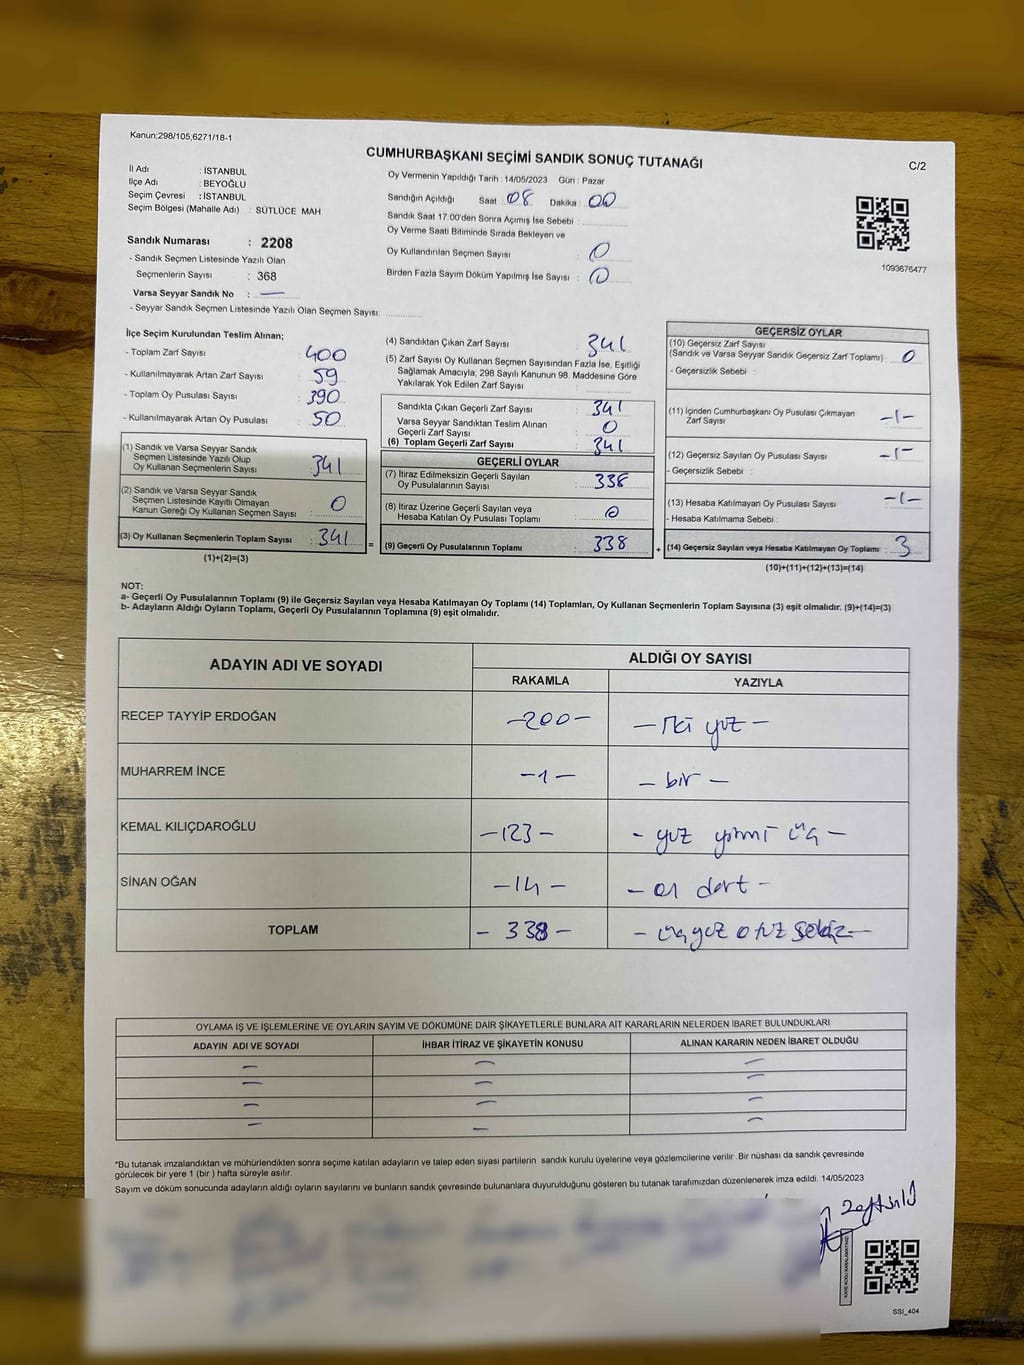 Kanun;298/105,6271/18-1
CUMHURBAŞKANI SEÇİMİ SANDIK SONUÇ TUTANAĞI
C/2
İl Adı : İSTANBUL
İlçe Adı : BEYOĞLU
Seçim Çevresi : İSTANBUL
Seçim Bölgesi (Mahalle Adı) : SÜTLÜCE MAH
Sandık Numarası : 2208
- Sandık Seçmen Listesinde Yazılı Olan
Seçmenlerin Sayısı : 368
Varsa Seyyar Sandık No : —
- Seyyar Sandık Seçmen Listesinde Yazılı Olan Seçmen Sayısı:
Oy Vermenin Yapıldığı Tarih : 14/05/2023 Gün : Pazar
Sandığın Açıldığı Saat : 08 Dakika : 00
Sandık Saat 17:00'den Sonra Açımış İse Sebebi :
Oy Verme Saati Bitiminde Sırada Bekleyen ve
Oy Kullandırılan Seçmen Sayısı : 0
Birden Fazla Sayım Döküm Yapılmış İse Sayısı : 0
1093676477
İlçe Seçim Kurulundan Teslim Alınan;
- Toplam Zarf Sayısı : 400
- Kullanılmayarak Artan Zarf Sayısı : 59
- Toplam Oy Pusulası Sayısı : 390
- Kullanılmayarak Artan Oy Pusulası : 50
(1) Sandık ve Varsa Seyyar Sandık
Seçmen Listesinde Yazılı Olup
Oy Kullanan Seçmenlerin Sayısı : 341
(2) Sandık ve Varsa Seyyar Sandık
Seçmen Listesinde Kayıtlı Olmayan
Kanun Gereği Oy Kullanan Seçmen Sayısı : 0
(3) Oy Kullanan Seçmenlerin Toplam Sayısı : 341
(1)+(2)=(3)
(4) Sandıktan Çıkan Zarf Sayısı : 341
(5) Zarf Sayısı Oy Kullanan Seçmen Sayısından Fazla İse, Eşitliği
Sağlamak Amacıyla, 298 Sayılı Kanunun 98. Maddesine Göre
Yakılarak Yok Edilen Zarf Sayısı :
Sandıkta Çıkan Geçerli Zarf Sayısı : 341
Varsa Seyyar Sandıktan Teslim Alınan
Geçerli Zarf Sayısı : 0
(6) Toplam Geçerli Zarf Sayısı : 341
GEÇERLİ OYLAR
(7) İtiraz Edilmeksizin Geçerli Sayılan
Oy Pusulalarının Sayısı : 338
(8) İtiraz Üzerine Geçerli Sayılan veya
Hesaba Katılan Oy Pusulası Toplamı : 0
= (9) Geçerli Oy Pusulalarının Toplamı : 338
GEÇERSİZ OYLAR
(10) Geçersiz Zarf Sayısı
(Sandık ve Varsa Seyyar Sandık Geçersiz Zarf Toplamı) : 0
- Geçersizlik Sebebi :
(11) İçinden Cumhurbaşkanı Oy Pusulası Çıkmayan
Zarf Sayısı : -1-
(12) Geçersiz Sayılan Oy Pusulası Sayısı : -1-
- Geçersizlik Sebebi :
(13) Hesaba Katılmayan Oy Pusulası Sayısı : -1-
- Hesaba Katılmama Sebebi :
+ (14) Geçersiz Sayılan veya Hesaba Katılmayan Oy Toplamı : 3
(10)+(11)+(12)+(13)=(14)
NOT:
a- Geçerli Oy Pusulalarının Toplamı (9) ile Geçersiz Sayılan veya Hesaba Katılmayan Oy Toplamı (14) Toplamları, Oy Kullanan Seçmenlerin Toplam Sayısına (3) eşit olmalıdır. (9)+(14)=(3)
b- Adayların Aldığı Oyların Toplamı, Geçerli Oy Pusulalarının Toplamına (9) eşit olmalıdır.
ADAYIN ADI VE SOYADI ALDIĞI OY SAYISI
RAKAMLA YAZIYLA
RECEP TAYYİP ERDOĞAN -200- - iki yuz -
MUHARREM İNCE -1- - bir -
KEMAL KILIÇDAROĞLU -123- - yuz yirmi üç -
SİNAN OĞAN -14- - on dort -
TOPLAM - 338 - - üçyuz otuz sekiz -
OYLAMA İŞ VE İŞLEMLERİNE VE OYLARIN SAYIM VE DÖKÜMÜNE DAİR ŞİKAYETLERLE BUNLARA AİT KARARLARIN NELERDEN İBARET BULUNDUKLARI
ADAYIN ADI VE SOYADI İHBAR İTİRAZ VE ŞİKAYETİN KONUSU ALINAN KARARIN NEDEN İBARET OLDUĞU
— — —
— — —
— — —
— — —
*Bu tutanak imzalandıktan ve mühürlendikten sonra seçime katılan adayların ve talep eden siyasi partilerin sandık kurulu üyelerine veya gözlemcilerine verilir. Bir nüshası da sandık çevresinde
görülecek bir yere 1 (bir ) hafta süreyle asılır.
Sayım ve döküm sonucunda adayların aldığı oyların sayılarını ve bunların sandık çevresinde bulunanlara duyurulduğunu gösteren bu tutanak tarafımızdan düzenlenerek imza edildi. 14/05/2023
SSI_404